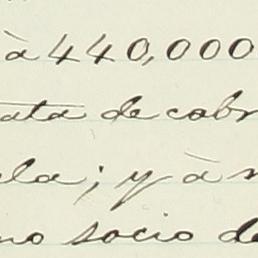 à 440,000
ata de cobr
ela; y à n
no socio de